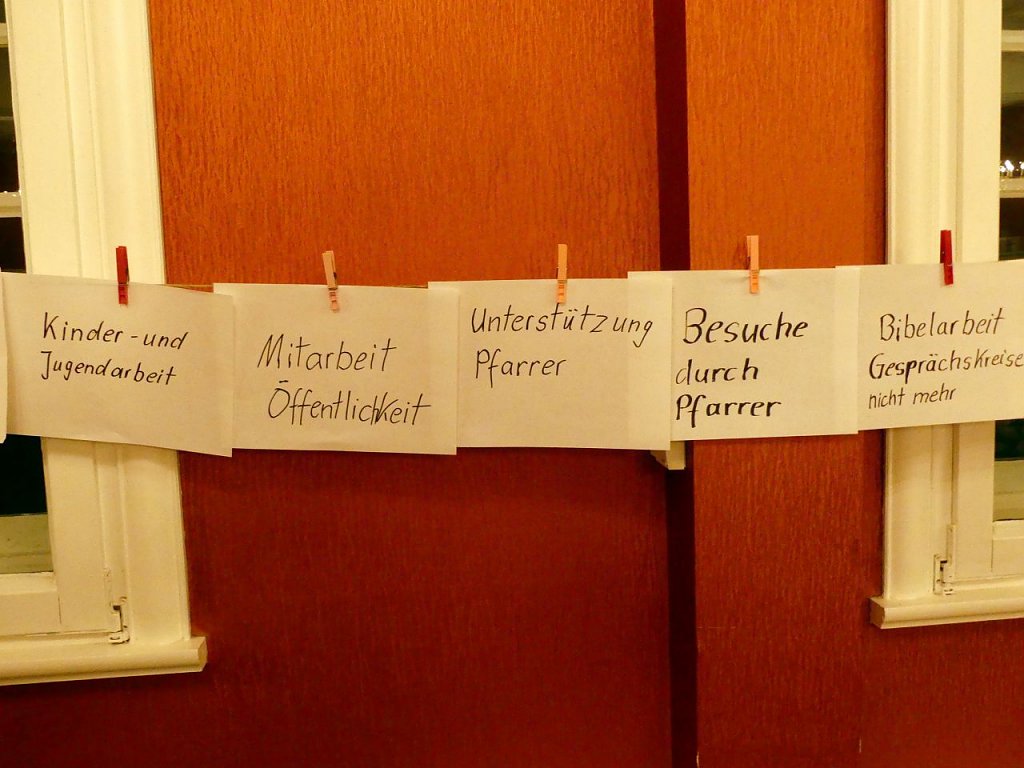 Kinder-und
Jugendarbeit
Mitarbeit
Öffentlichkeit
Unterstützung
Pfarrer
Besuche
durch
Pfarrer
Bibelarbeit
Gesprächskreise
nicht mehr